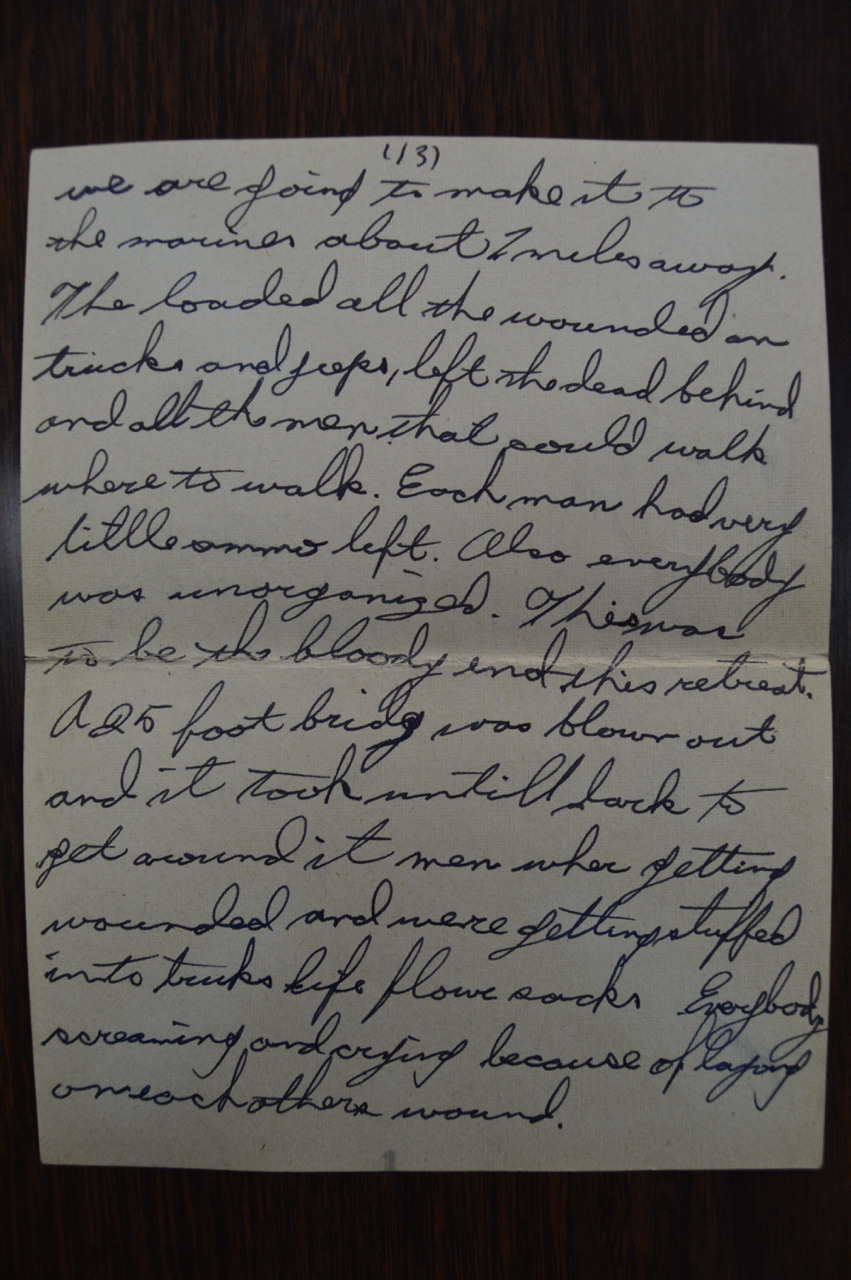 (13)
we are going to make it to
the marines about 7 miles away.
The loaded all the wounded on
trucks and jeeps, left the dead behind
and all the men that could walk
where to walk. Each man had very
little ammo left. Also everybody
was unorganized. This was
to be the bloody end this retreat.
A 25 foot bridg was blown out
and it took untill dark to
get around it men wher getting
wounded and were getting stuffed
into truks life flour sacks Everybody
screaming and crying because of laying
on each others wound.